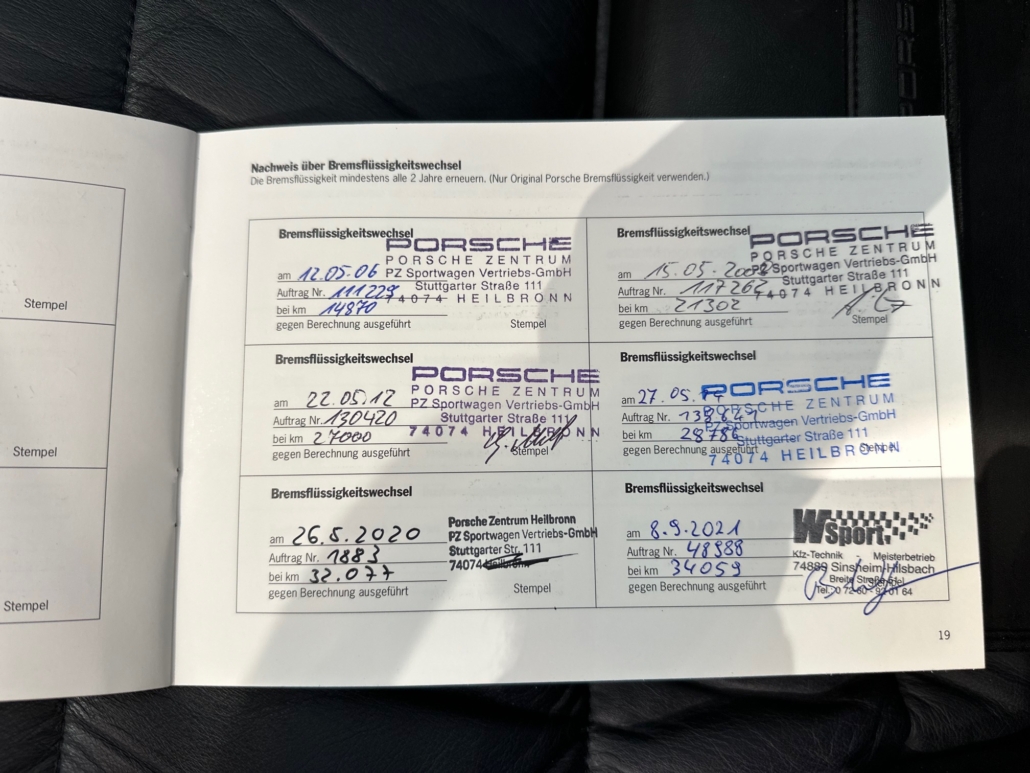 Nachweis über Bremsflüssigkeitswechsel
Die Bremsflüssigkeit mindestens alle 2 Jahre erneuern. (Nur Original Porsche Bremsflüssigkeit verwenden.)
Bremsflüssigkeitswechsel
am 12.05.06
Auftrag Nr. 111229
bei km 14870
gegen Berechnung ausgeführt
Stempel
PORSCHE
PORSCHE ZENTRUM
PZ Sportwagen Vertriebs-GmbH
Stuttgarter Straße 111
74074 HEILBRONN
Bremsflüssigkeitswechsel
am 15.05.
Auftrag Nr. 117262
bei km 21302
gegen Berechnung ausgeführt
Stempel
PORSCHE
PORSCHE ZENTRUM
PZ Sportwagen Vertriebs-GmbH
Stuttgarter Straße 111
74074 HEILBRONN
Bremsflüssigkeitswechsel
am 22.05.12
Auftrag Nr. 130420
bei km 27000
gegen Berechnung ausgeführt
Stempel
PORSCHE
PORSCHE ZENTRUM
PZ Sportwagen Vertriebs-GmbH
Stuttgarter Straße 111
74074 HEILBRONN
Bremsflüssigkeitswechsel
am 27.05.
Auftrag Nr.
bei km 28786
gegen Berechnung ausgeführt
Stempel
PORSCHE
PORSCHE ZENTRUM
PZ Sportwagen Vertriebs-GmbH
Stuttgarter Straße 111
74074 HEILBRONN
Bremsflüssigkeitswechsel
am 26.5.2020
Auftrag Nr. 1883
bei km 32.077
gegen Berechnung ausgeführt
Stempel
Porsche Zentrum Heilbronn
PZ Sportwagen Vertriebs-GmbH
Stuttgarter Str. 111
74074 Heilbronn
Bremsflüssigkeitswechsel
am 8.9.2021
Auftrag Nr. 48988
bei km 34059
gegen Berechnung ausgeführt
Stempel
W Sport
Kfz-Technik - Meisterbetrieb
74889 Sinsheim-Hilsbach
Breite Straße
Tel. 0 72 60 -
19
Stempel
Stempel
Stempel